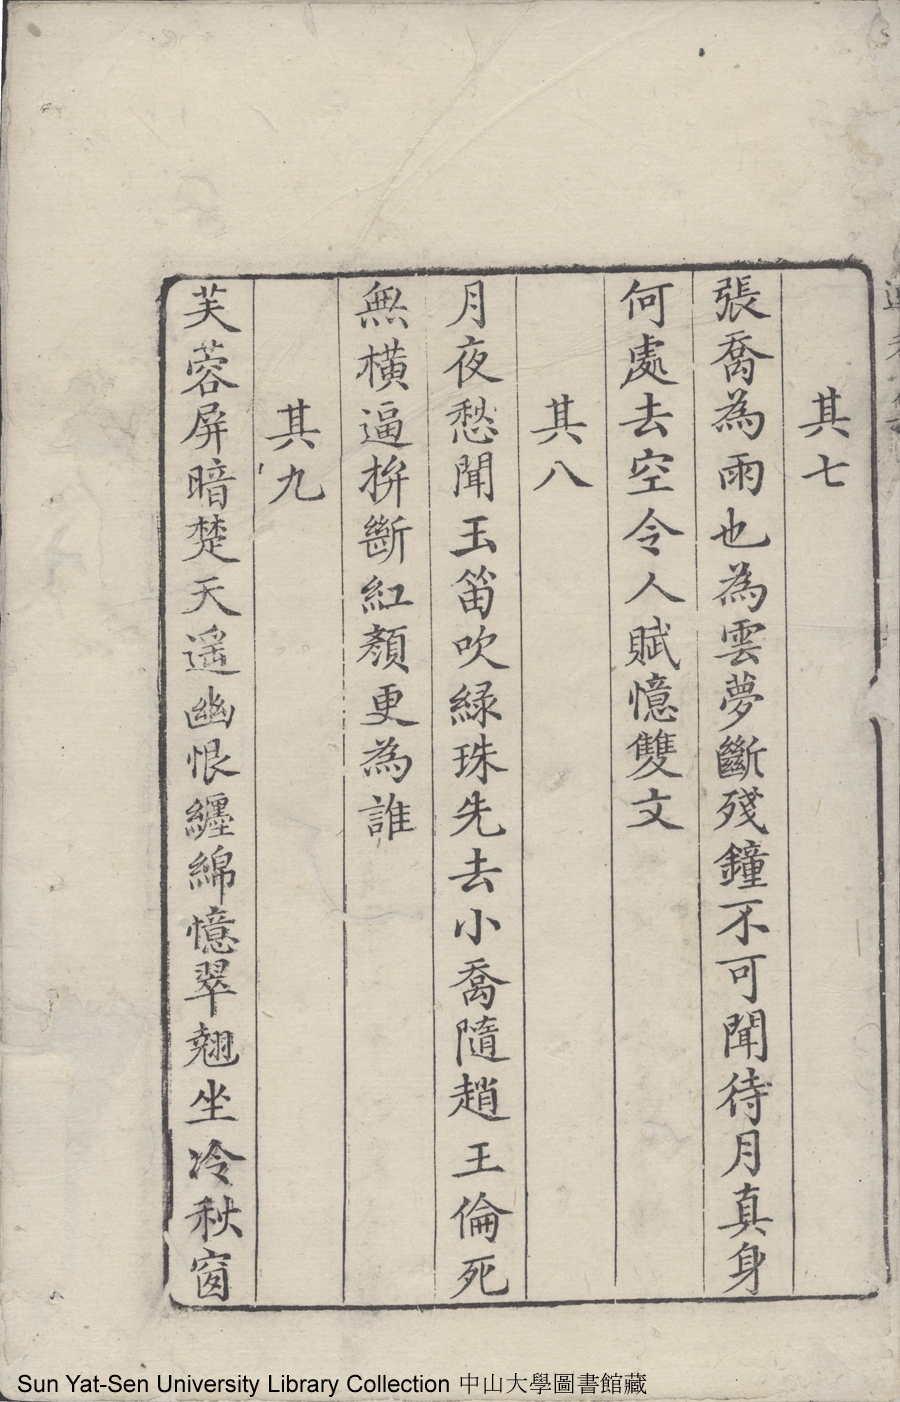 其七
張喬為雨也為雲夢斷殘鐘不可聞待月真身
何處去空令人賦憶雙文
其八
月夜愁聞玉笛吹緑珠先去小喬隨趙王倫死
無橫逼拚斷紅顏更為誰
其九
芙蓉屏暗楚天遥幽恨纏綿憶翠翹坐冷秋窗
Sun Yat-Sen University Library Collection 中山大學圖書館藏